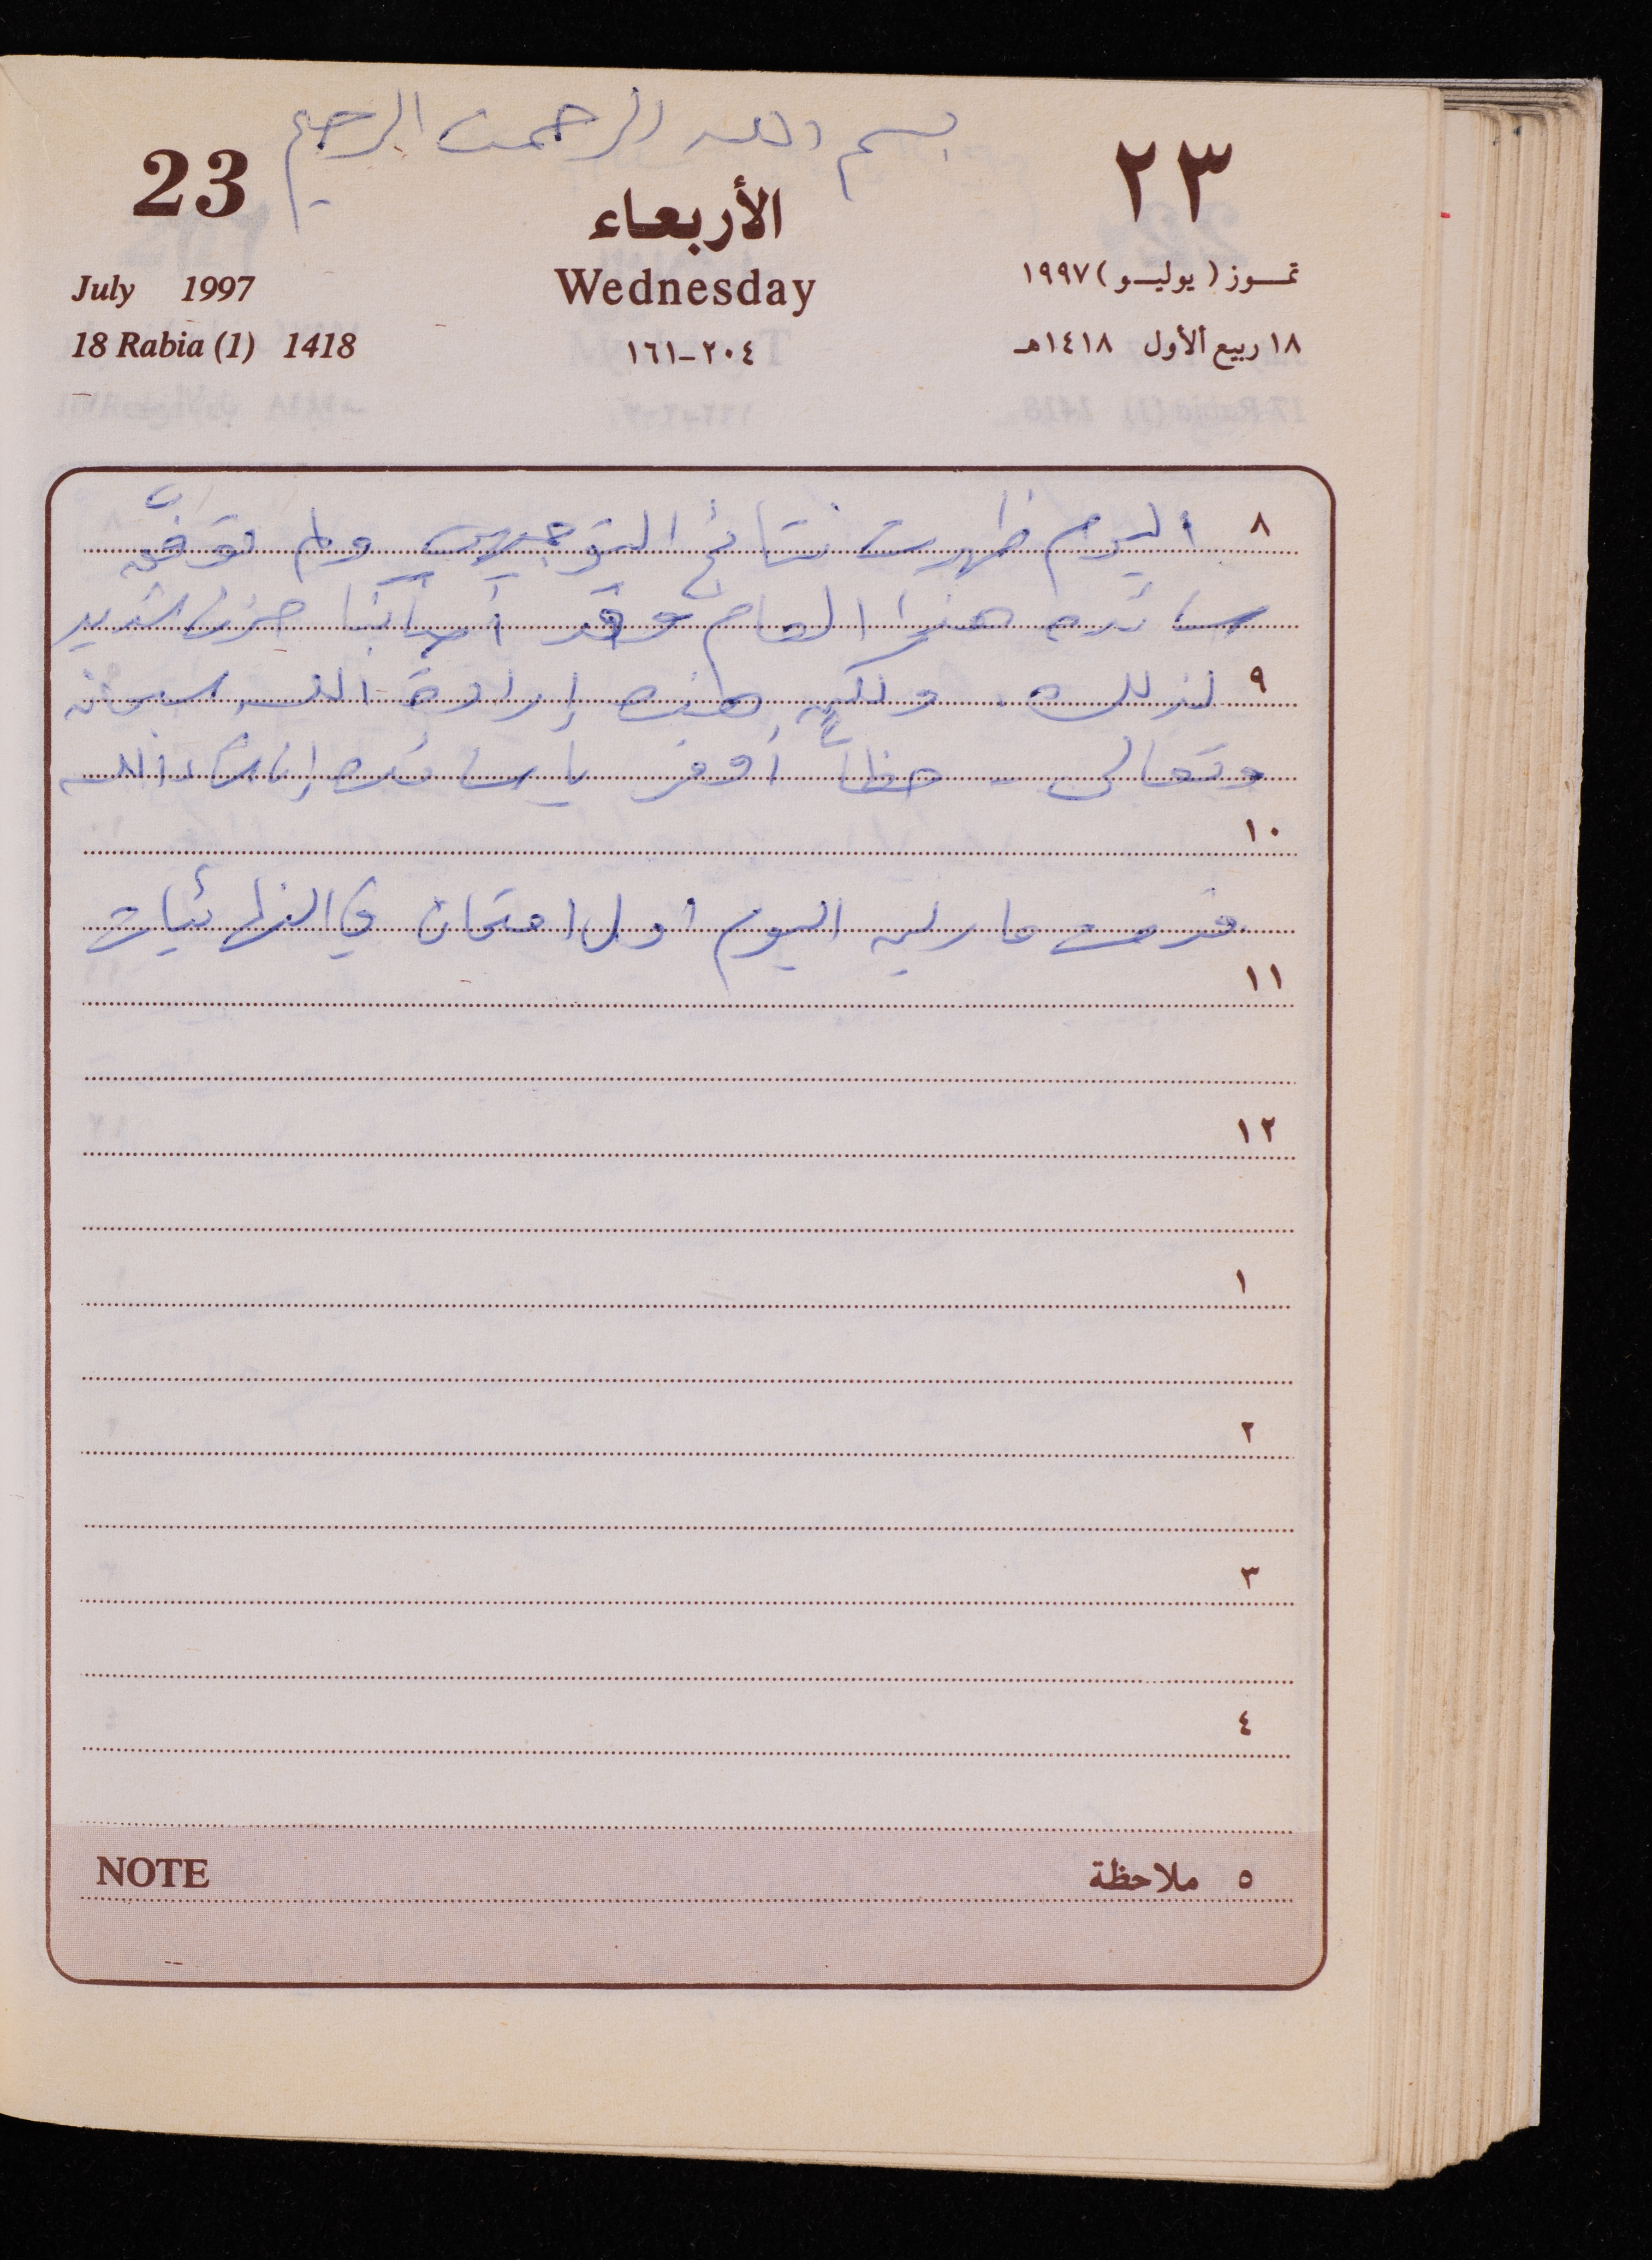 بسم الله الرحمن الرحيم
23
٢٣
الأربعاء
July 1997
Wednesday
تمـوز (يوليـو) ١٩٩٧
18 Rabia (1) 1418
٢٠٤-١٦١
١٨ ربيع الأول ١٤١٨هـ
٨ اليوم ظهرت نتائج التوجيهي ولم توفّق
سائده هذا العام وقد أصابنا حزن شديد
٩ لذلك. ولكن هذه إرادة الله سبحانه
وتعالى - حظاً أوفر يا سائده إن شاء الله
١٠
قدمت ماريه اليوم اول امتحان في النهائيات
١١
١٢
١
٢
٣
٤
NOTE ٥ ملاحظة